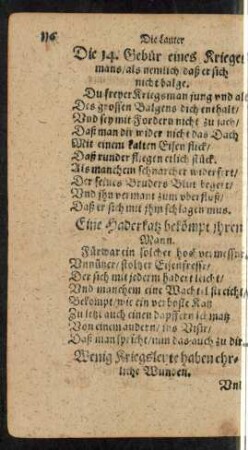 116 Die lauter
Die 14. Gebür eines Krieges
mans/als nemlich daß er sich
nicht balge.
Du freyer Kriegsman jung und alt
Des grossen Balgens dich enthalt/
Und sey mit Fordern nicht zu jach/
Daß man dir wider nicht das Dach
Mit einem kalten Eisen flick/
Daß runder fliegen etlich stück.
Als manchem schnarcher widerfert/
Der seines Bruders Blut begert/
Und ihn vermant zum uberfluß/
Daß er sich mit ihm schlagen mus.
Eine Haderkatz bekömpt ihren
Mann.
Fürwar ein solcher
Unnützer/stoltzer Eisenfresser/
Der sich mit jederm hadert leicht/
Und manchem eine Wachtel streicht/
Bekompt/wie ein verboste Katz
Zu letzt auch einen dapffern
Von einem andern/ins Visir/
Daß man spricht/nun das auch zu dir
Wenig Kriegsleute haben ehr-
liche Wunden.
Und